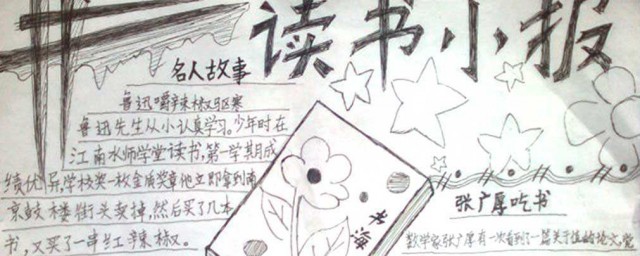 读书小报
名人故事
鲁迅嚼辣椒驱寒
鲁迅先生从小认真学习。少年时在
江南水师学堂读书,第一学期成
绩优异,学校奖一枚金质奖章他立即拿到南
京鼓楼街头卖掉,然后买了几本
书,又买了一串红辣椒。
书海
张广厚吃书
数学家张广厚有一次看到了一篇关于值的论文,觉